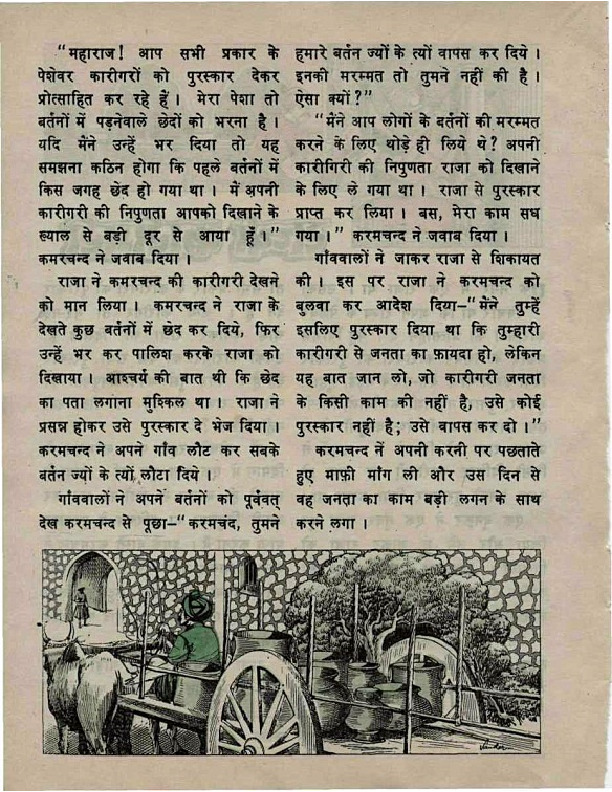 “महाराज! आप सभी प्रकार के
पेशेवर कारीगरों को पुरस्कार देकर
प्रोत्साहित कर रहे हैं। मेरा पेशा तो
बर्तनों में पड़नेवाले छेदों को भरना है।
यदि मैंने उन्हें भर दिया तो यह
समझना कठिन होगा कि पहले बर्तनों में
किस जगह छेद हो गया था। में अपनी
कारीगरी की निपुणता आपको दिखाने के
ख्याल से बड़ी दूर से आया हूँ।”
कमरचन्द ने जवाब दिया।
राजा ने कमरचन्द की कारीगरी देखने
को मान लिया। कमरचन्द ने राजा के
देखते कुछ बर्तनों में छेद कर दिये, फिर
उन्हें भर कर पालिश करके राजा को
दिखाया। आश्चर्य की बात थी कि छेद
का पता लगाना मुश्किल था। राजा ने
प्रसन्न होकर उसे पुरस्कार दे भेज दिया।
करमचन्द ने अपने गाँव लौट कर सबके
बर्तन ज्यों के त्यों लौटा दिये।
गाँववालों ने अपने बर्तनों को पूर्ववत्
देख करमचन्द से पूछा-“करमचंद, तुमने
हमारे बर्तन ज्यों के त्यों वापस कर दिये।
इनकी मरम्मत तो तुमने नहीं की है।
ऐसा क्यों?”
“मैंने आप लोगों के बर्तनों की मरम्मत
करने के लिए थोड़े ही लिये थे? अपनी
कारीगिरी की निपुणता राजा को दिखाने
के लिए ले गया था। राजा से पुरस्कार
प्राप्त कर लिया। बस, मेरा काम सध
गया।” करमचन्द ने जवाब दिया।
गाँववालों ने जाकर राजा से शिकायत
की। इस पर राजा ने करमचन्द को
बुलवा कर आदेश दिया-“मैंने तुम्हें
इसलिए पुरस्कार दिया था कि तुम्हारी
कारीगरी से जनता का फ़ायदा हो, लेकिन
यह बात जान लो, जो कारीगरी जनता
के किसी काम की नहीं है, उसे कोई
पुरस्कार नहीं है; उसे वापस कर दो।”
करमचन्द ने अपनी करनी पर पछताते
हुए माफ़ी माँग ली और उस दिन से
वह जनता का काम बड़ी लगन के साथ
करने लगा।